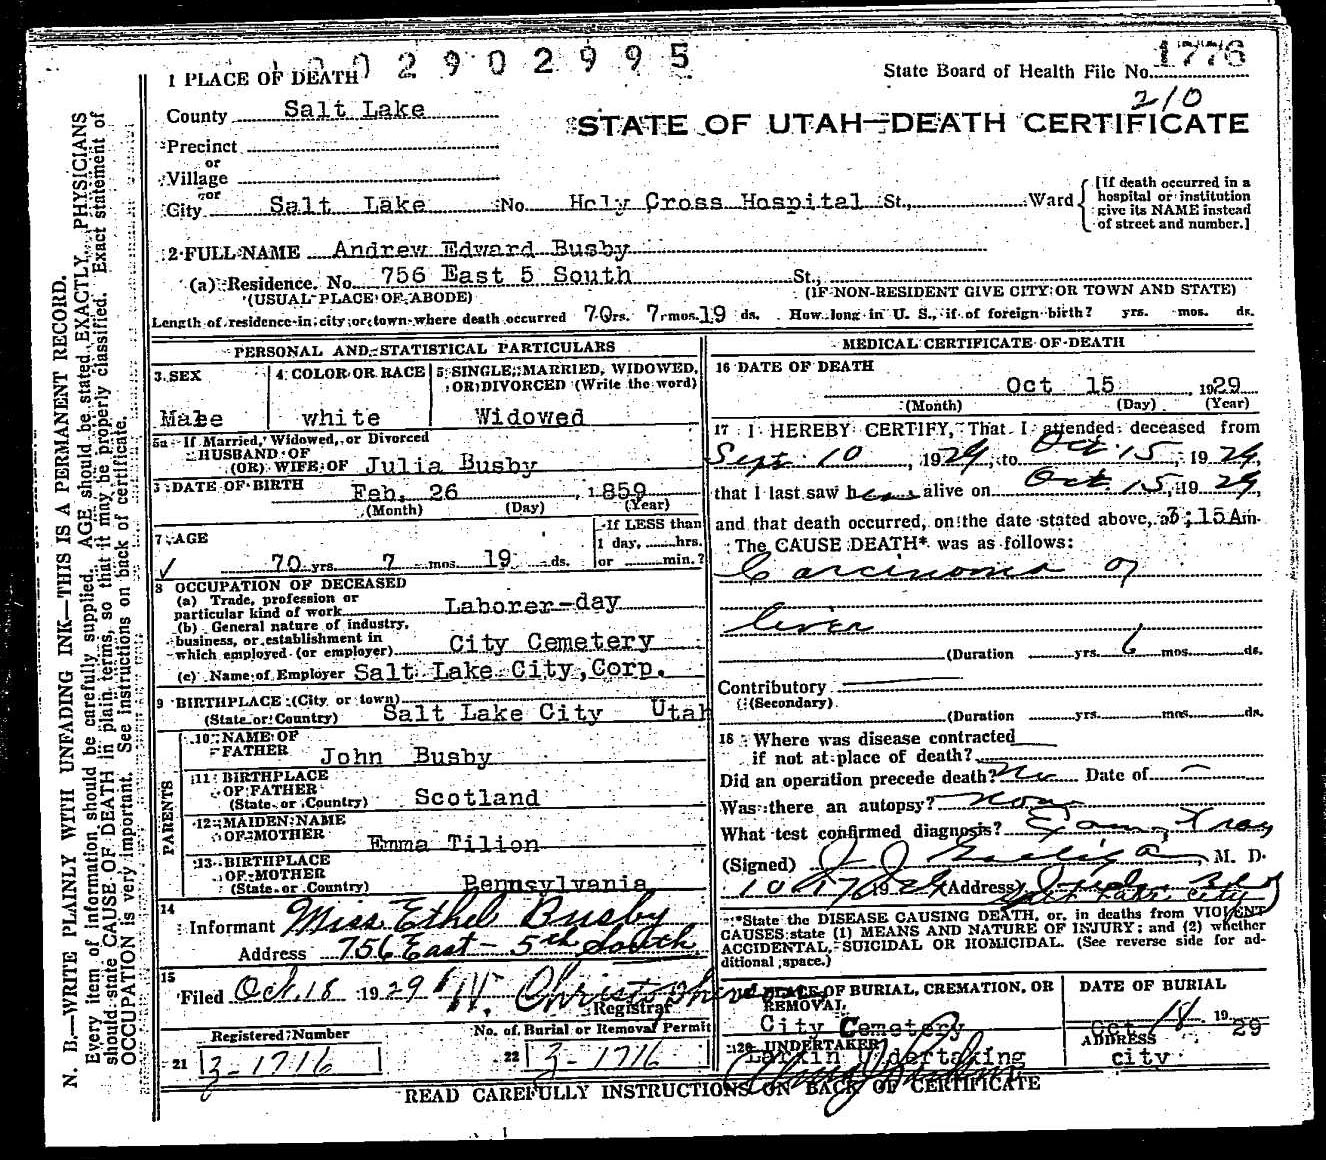 002902995
1776
1 PLACE OF DEATH
State Board of Health File No.
210
County Salt Lake
STATE OF UTAH—DEATH CERTIFICATE
Precinct
or
Village
or
City Salt Lake No. Holy Cross Hospital St., Ward
[If death occurred in a
hospital or institution
give its NAME instead
of street and number.]
2 FULL NAME Andrew Edward Busby
(a) Residence. No. 756 East 5 South St.,
(USUAL PLACE OF ABODE) (IF NON-RESIDENT GIVE CITY OR TOWN AND STATE)
Length of residence in city or town where death occurred 70rs. 7 mos. 19 ds. How long in U. S., if of foreign birth? yrs. mos. ds.
PERSONAL AND STATISTICAL PARTICULARS
3 SEX
Male
4 COLOR OR RACE
white
5 SINGLE, MARRIED, WIDOWED,
OR DIVORCED (Write the word)
Widowed
5a If Married, Widowed, or Divorced
HUSBAND OF
(OR) WIFE OF Julia Busby
DATE OF BIRTH Feb. 26, 1859
(Month) (Day) (Year)
7 AGE
70 yrs. 7 mos 19 ds.
If LESS than
1 day, hrs.
or min.?
8 OCCUPATION OF DECEASED
(a) Trade, profession or
particular kind of work Laborer-day
(b) General nature of industry,
business, or establishment in
which employed (or employer) City Cemetery
(c) Name of Employer Salt Lake City, Corp.
9 BIRTHPLACE (City or town)
(State or Country) Salt Lake City Utah
PARENTS
10 NAME OF
FATHER John Busby
11 BIRTHPLACE
OF FATHER
(State or Country) Scotland
12 MAIDEN NAME
OF MOTHER Emma Tilion
13 BIRTHPLACE
OF MOTHER
(State or Country) Pennsylvania
14
Informant Miss Ethel Busby
Address 756 East - 5th South
15
Filed Oct. 18 1929 W. Christopherson
Registrar
Registered Number
21 3-1716
No. of Burial or Removal Permit
22 3-1716
MEDICAL CERTIFICATE OF DEATH
16 DATE OF DEATH
Oct 15 1929
(Month) (Day) (Year)
17 I HEREBY CERTIFY, That I attended deceased from
Sept 10, 1929, to Oct 15, 1929,
that I last saw h alive on Oct 15, 1929,
and that death occurred, on the date stated above, at 3:15Am.
The CAUSE DEATH* was as follows:
Carcinoma of
liver
(Duration yrs. 6 mos. ds.
Contributory
(Secondary)
(Duration yrs. mos. ds.
18 Where was disease contracted
if not at place of death?
Did an operation precede death? No Date of —
Was there an autopsy?
What test confirmed diagnosis? Xray
(Signed) M. D.
10/17/1929 (Address) Salt Lake City
*State the DISEASE CAUSING DEATH, or, in deaths from VIOLENT
CAUSES state (1) MEANS AND NATURE OF INJURY; and (2) whether
ACCIDENTAL, SUICIDAL OR HOMICIDAL. (See reverse side for ad-
ditional space.)
PLACE OF BURIAL, CREMATION, OR
REMOVAL
City Cemetery
DATE OF BURIAL
Oct 18 1929
20 UNDERTAKER
Larkin Undertaking
ADDRESS
city
READ CAREFULLY INSTRUCTIONS ON BACK OF CERTIFICATE
N. B.—WRITE PLAINLY WITH UNFADING INK—THIS IS A PERMANENT RECORD.
Every item of information should be carefully supplied. AGE should be stated EXACTLY. PHYSICIANS
should state CAUSE OF DEATH in plain terms, so that it may be properly classified. Exact statement of
OCCUPATION is very important. See instructions on back of certificate.